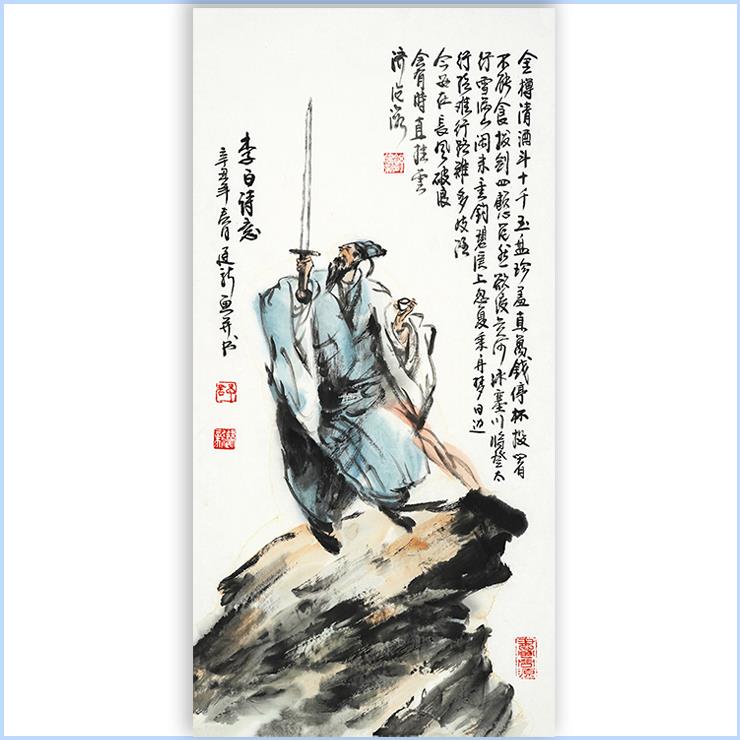 金樽清酒斗十千玉盘珍羞直萬錢停杯投箸
不能食拔剑四顧心茫然欲渡黄河冰塞川將登太
行雪满山闲来垂钓碧溪上忽复乘舟梦日边
行路难行路難多歧路
今安在長風破浪
会有時直挂雲
济沧海
李白詩意
辛丑年春月廷新画并书